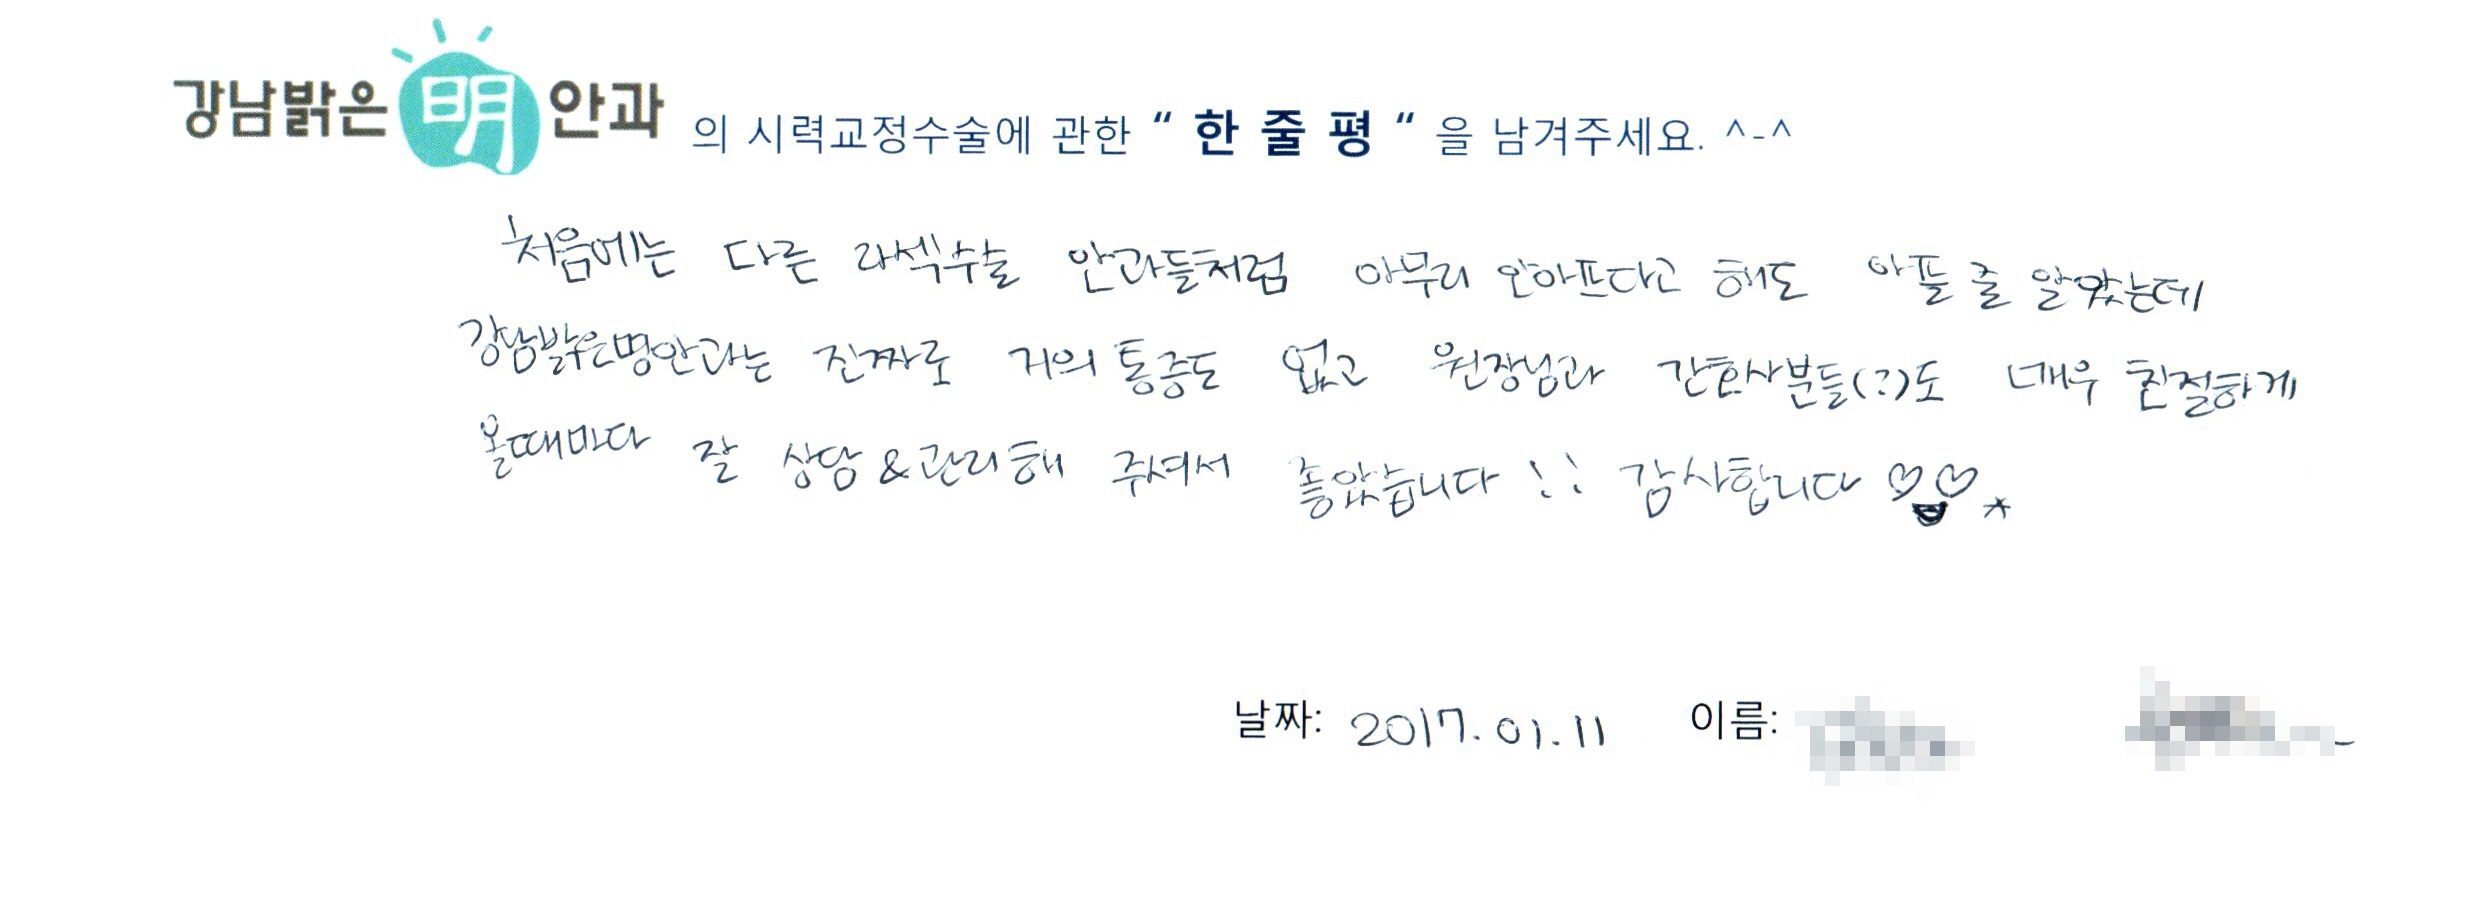 강남밝은明안과의 시력교정수술에 관한 “ 한 줄 평 “ 을 남겨주세요. ^-^
처음에는 다른 라섹수술 안과들처럼 아무리 안아프다고 해도 아플 줄 알았는데
강남밝은명안과는 진짜로 거의 통증도 없고 원장님과 간호사분들(?)도 매우 친절하게
올때마다 잘 상담&관리해 주셔서 좋았습니다!! 감사합니다 ♡♡
날짜: 2017.01.11 이름: